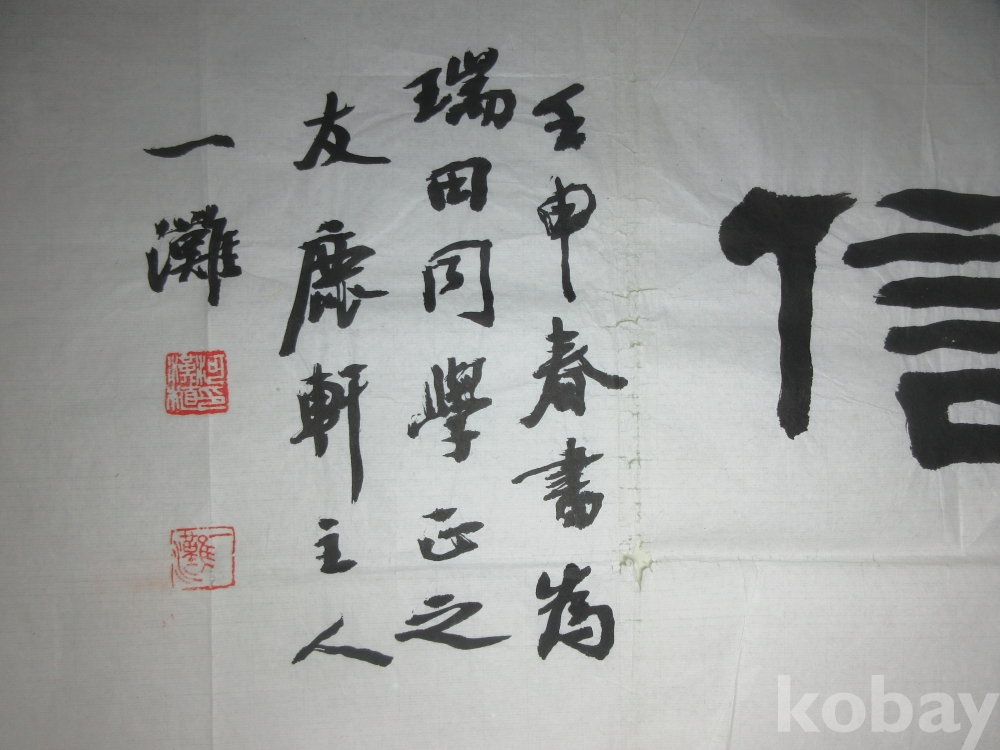 信
壬申春書為
瑞田同學正之
友鹿軒主人
一灘
一灘
kobay